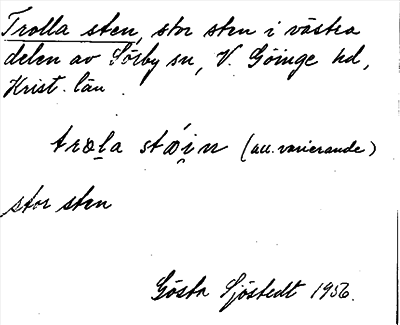 Trolla sten, stor sten i västra
delen av Sörby sn, V. Göinge hd,
Krist. län.
træla stǿin (acc. varierande)
stor sten
Gösta Sjöstedt 1956.